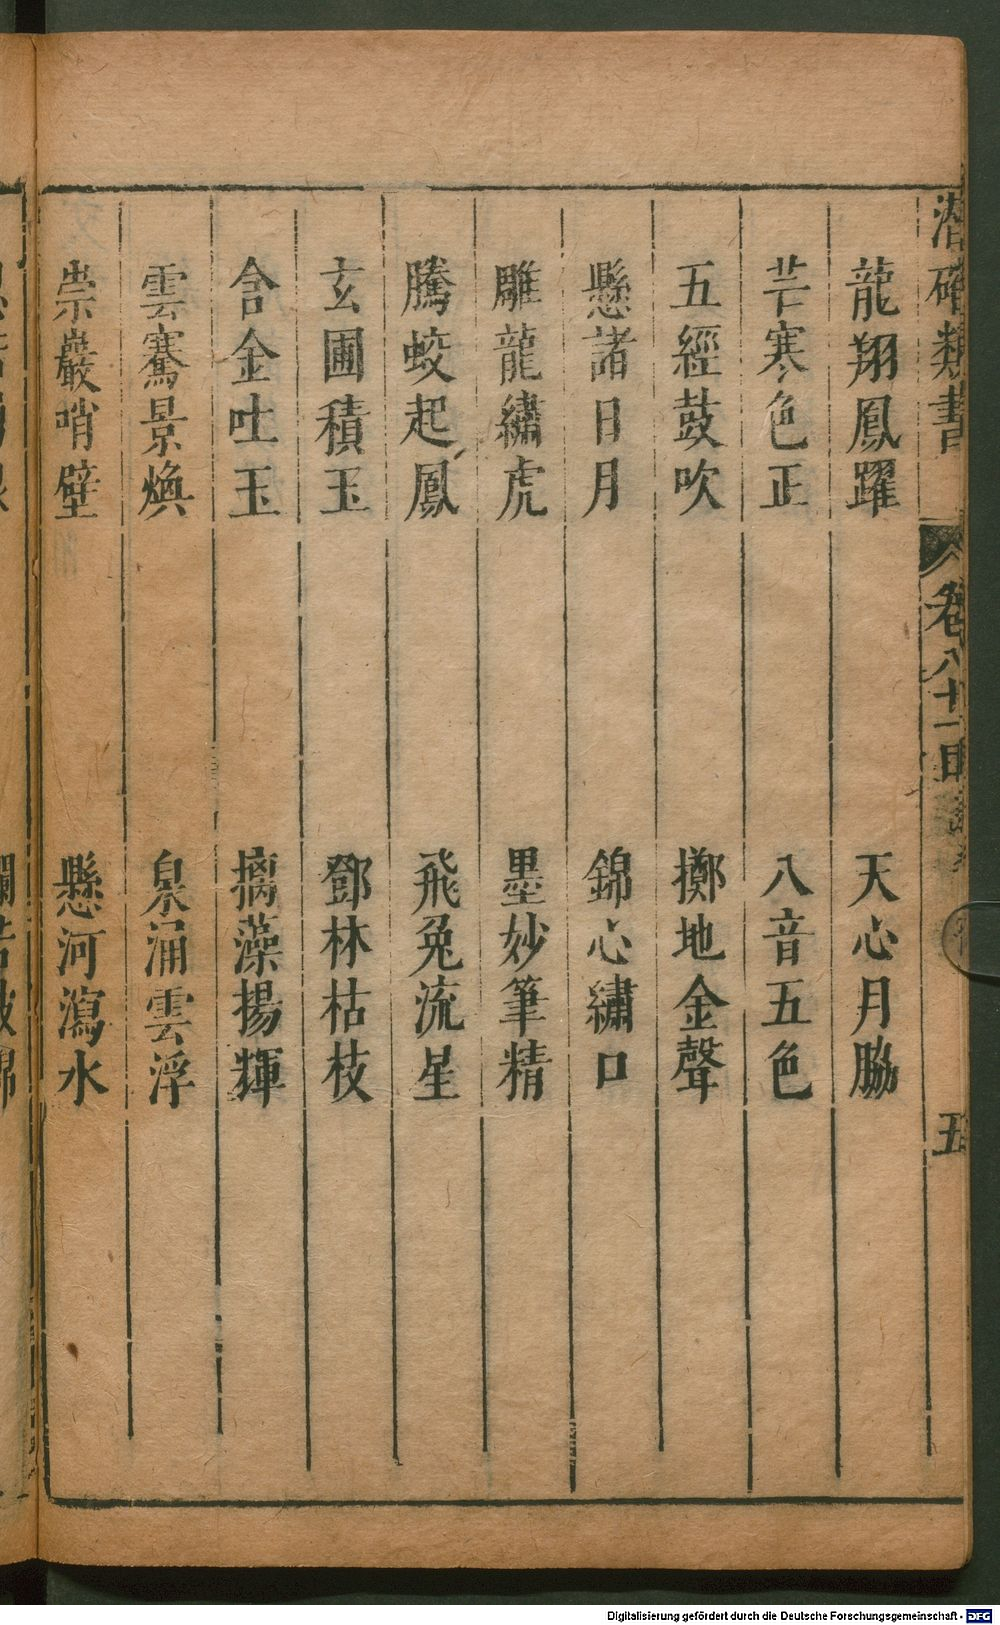 潛確類書 卷八十一目 五
龍翔鳳躍 天心月脇
芒寒色正 八音五色
五經鼓吹 擲地金聲
懸諸日月 錦心繡口
雕龍繡虎 墨妙筆精
騰蛟起鳳 飛兔流星
玄圃積玉 鄧林枯枝
含金吐玉 摛藻揚輝
雲騫景煥 泉涌雲浮
崇巖哨壁 懸河瀉水
Digitalisierung gefördert durch die Deutsche Forschungsgemeinschaft - DFG